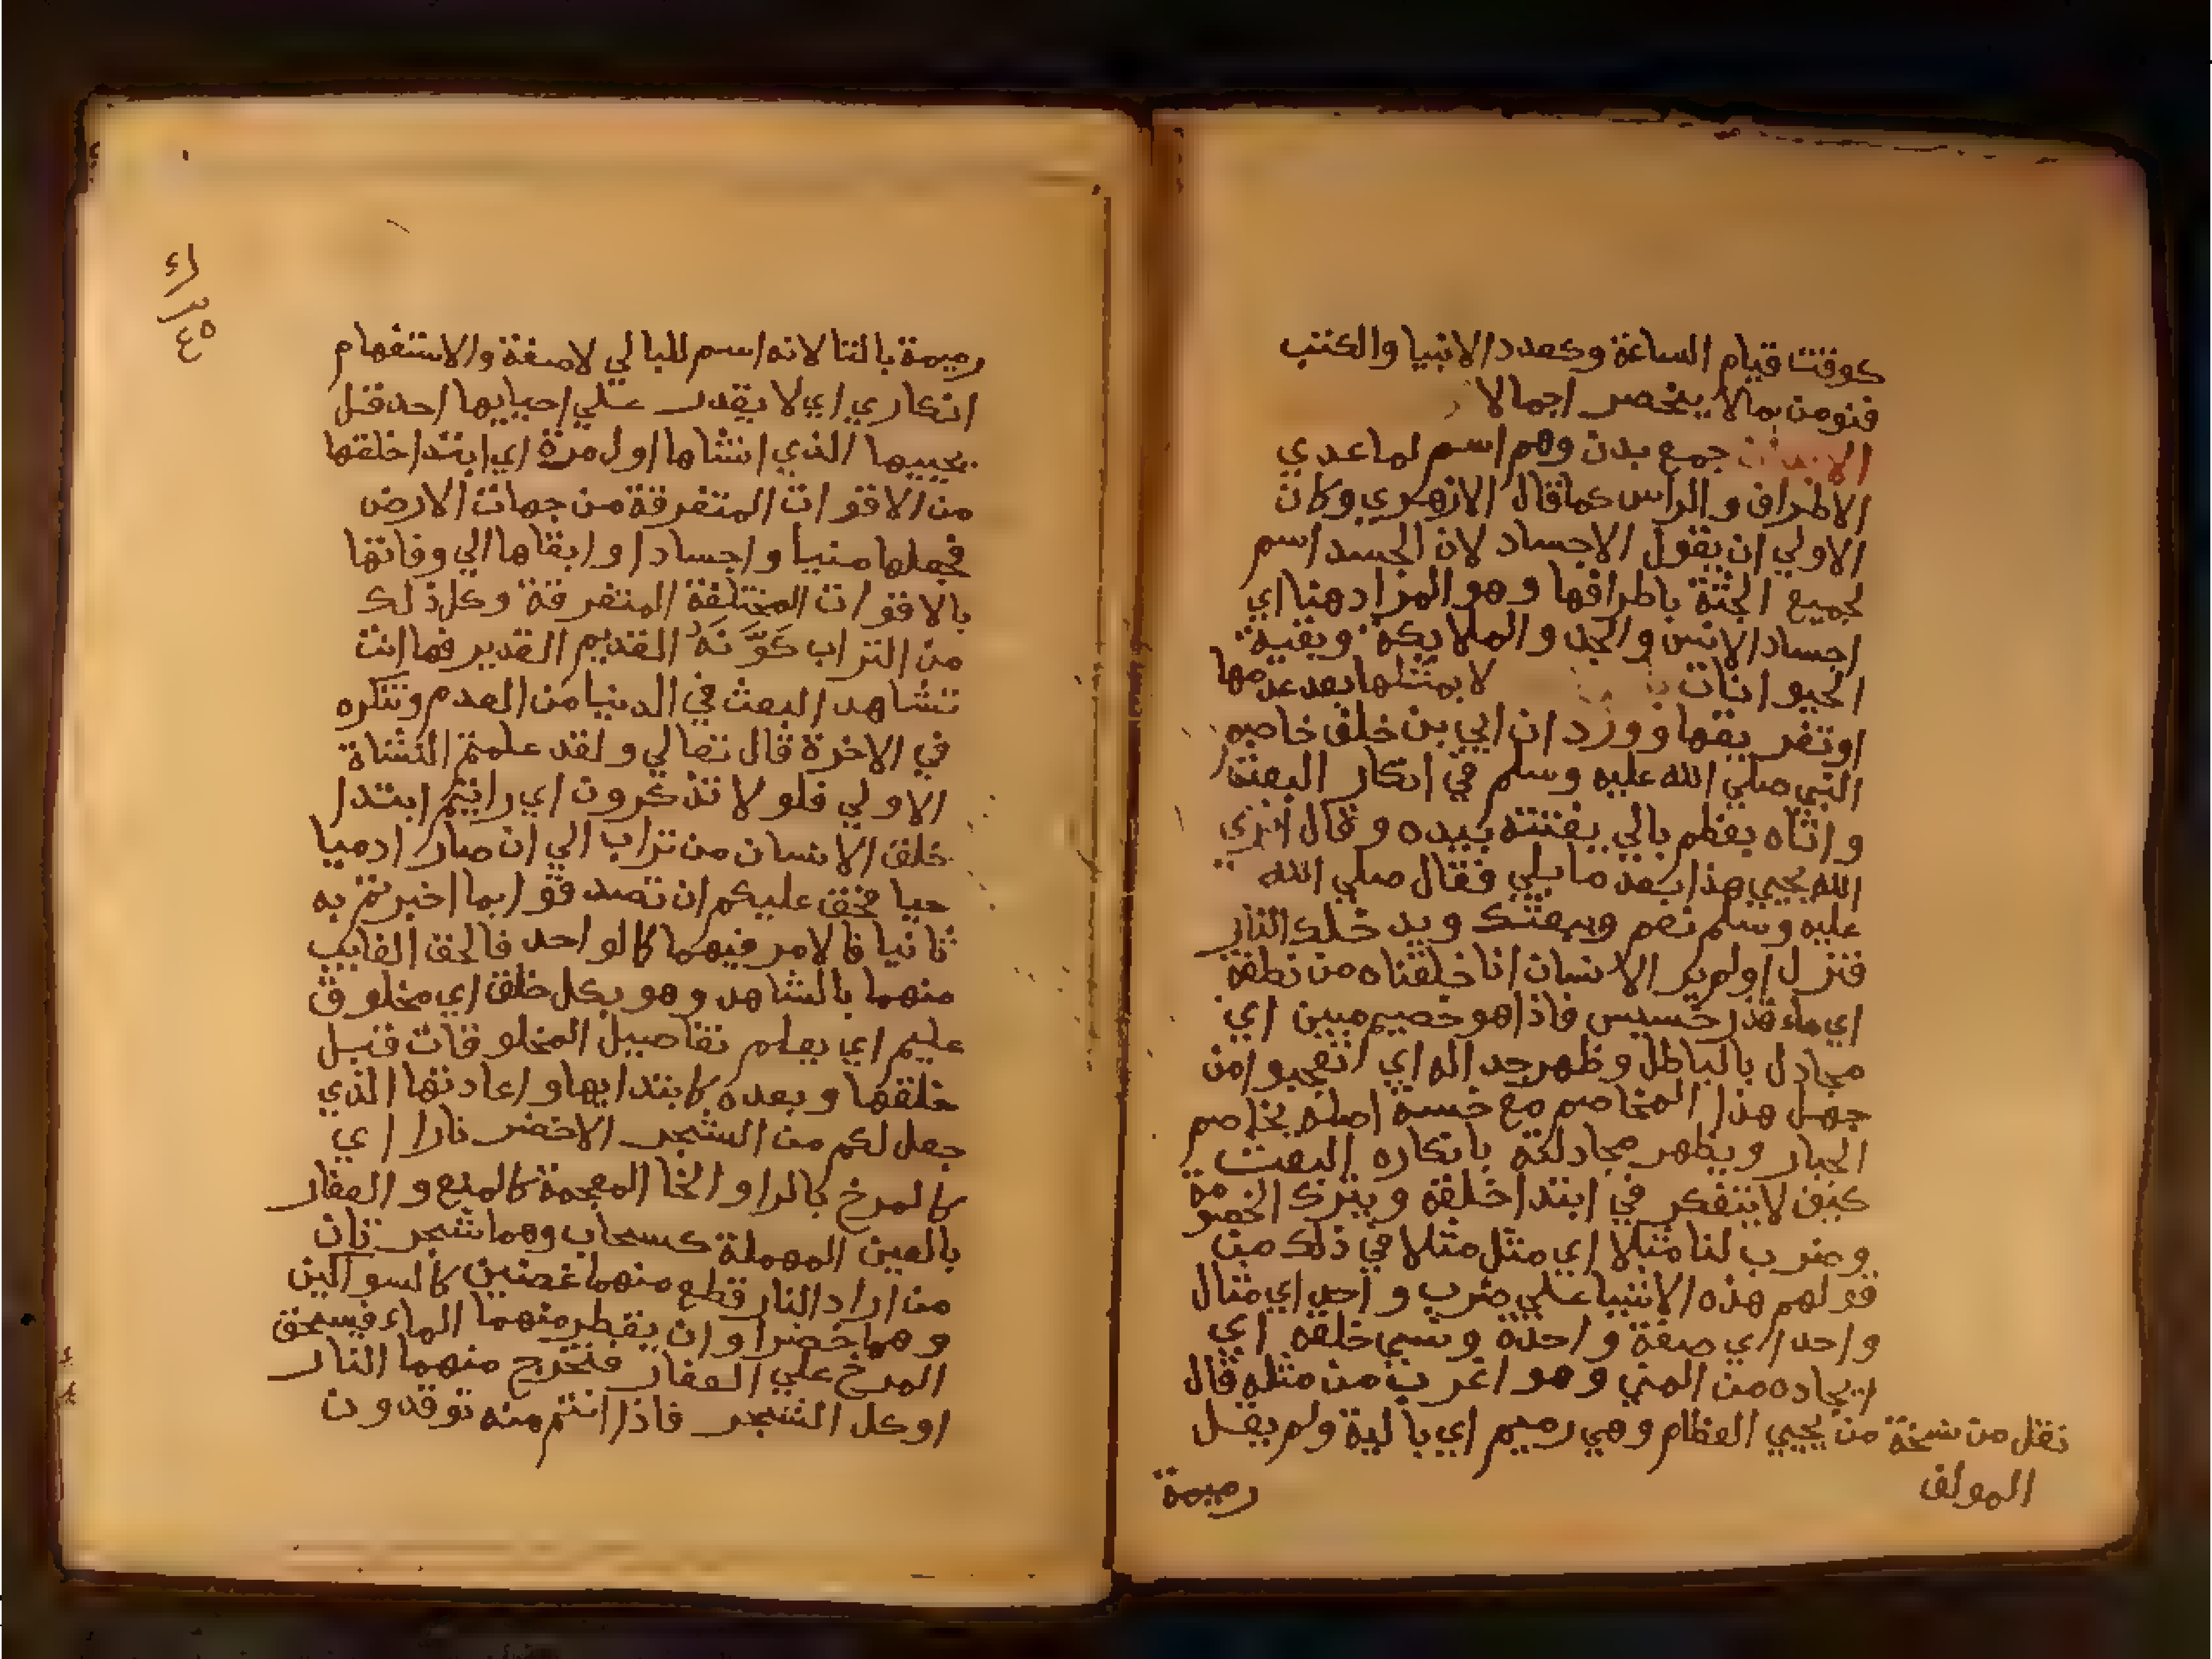 كوقت قيام الساعة وكعدد الانبيا والكتب
فنومن بما لا ينحصر اجمالا
جمع بدن وهم اسم لما عدي
الاطراف والراس كما قال الازهري وكان
الاولي ان يقول الاجساد لان الجسد اسم
لجميع الجثة باطرافها وهو المراد هنا اي
اجساد الانس والجن والملايكة وبقية
الحيوانات لا بمثلها بعد عدمها
او تفريقها وورد ان ابي بن خلف خاصم
النبي صلي الله عليه وسلم في انكار البعث
واتاه بعظم بالي يفتته بيده وقال اتري
الله يحيي هذا بعد ما بلي فقال صلي الله
عليه وسلم نعم ويبعثك ويدخلك النار
فنزل اولم ير الانسان انا خلقناه من نطفة
اي ماء قذر خسيس فاذا هو خصيم مبين اي
مجادل بالباطل وظهر جداله اي اتعجبوا من
جهل هذا المخاصم مع خسة اصله يخاصم
الجبار ويظهر مجادلته بانكاره البعث
كيف لا يتفكر في ابتدا خلقه ويترك الخصومة
وضرب لنا مثلا اي مثل مثلا في ذلك من
قولهم هذه الاشيا علي ضرب واحد اي مثال
واحد اي صفة واحدة ونسي خلقه اي
ايجاده من المني وهو اغرب من مثله قال
من يحيي العظام وهي رميم اي بالية ولم يقل
نقل من نسخة
المولف
رميمة
رميمة بالتا لانه اسم للبالي لا صفة والاستفهام
انكاري اي لا يقدر علي احيايها احد قل
يحييها الذي انشاها اول مرة اي ابتدا خلقها
من الاقوات المتفرقة من جهات الارض
فجعلها منيا واجسادا وابقاها الي وفاتها
بالاقوات المختلفة المتفرقة وكل ذلك
من التراب كَوَّنَهُ القديم القدير فما انت
تشاهد البعث في الدنيا من العدم وتنكره
في الاخرة قال تعالي ولقد علمتم النشاة
الاولي فلولا تذكرون اي رايتم ابتدا
خلق الانسان من تراب الي ان صار ادميا
حيا فحق عليكم ان تصدقوا بما اخبرتم به
ثانيا فالامر فيهما كالواحد فالحق الغايب
منهما بالشاهد وهو بكل خلق اي مخلوق
عليم اي يعلم تفاصيل المخلوقات قبل
خلقها وبعده كابتدايها واعادتها الذي
جعل لكم من الشجر الاخضر نارا اي
كالمرخ بالرا والخا المعجمة كالمنع والعفار
بالعين المهملة كسحاب وهما شجرتان
من اراد النار قطع منهما غصنين كالسواكين
وهما خضراوان يقطر منهما الماء فيسحق
المرخ علي العفار فتخرج منهما النار
او كل الشجر فاذا انتم منه توقدون